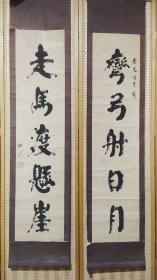 彎弓射日月
走馬度懸崖